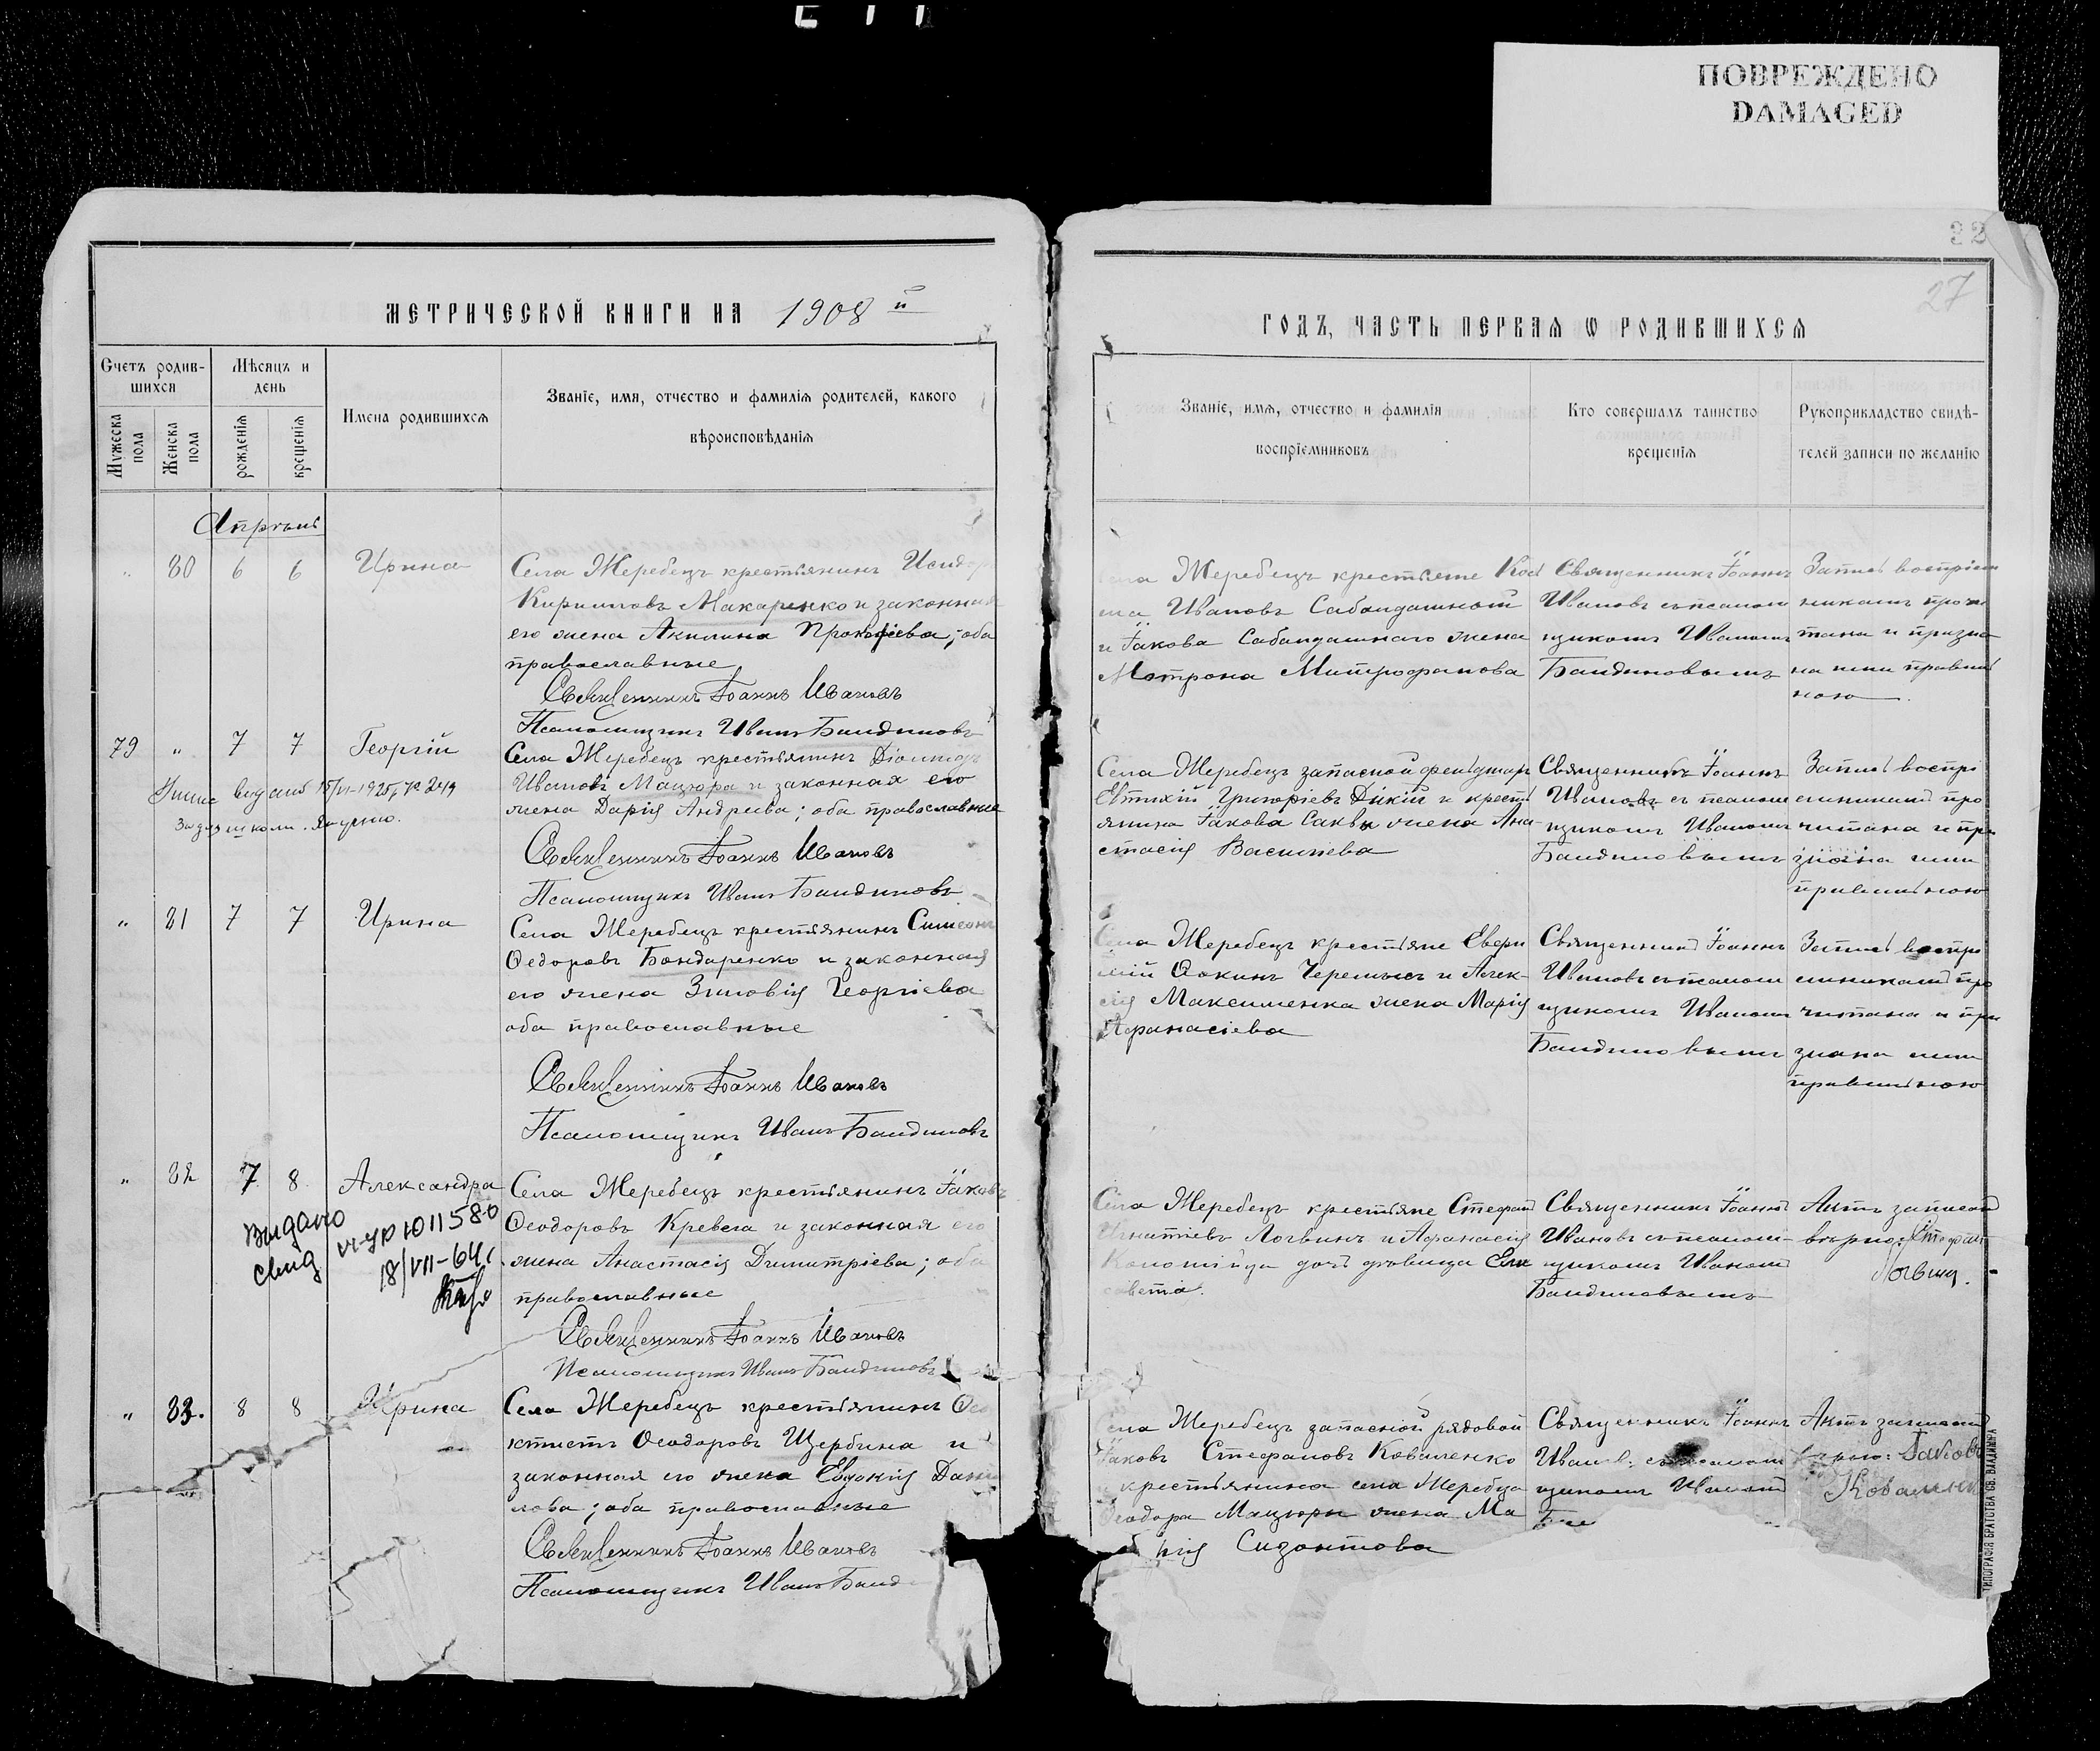 ПОВРЕЖДЕНО
DAMAGED
32
27
МЕТРИЧЕСКОЙ КНИГИ НА 1908 й
ГОДЪ, ЧАСТЬ ПЕРВАЯ Ѡ РОДИВШИХСЯ
Счетъ родив-
шихся
Мужеска
пола
Женска
пола
Мѣсяцъ и
день
рожденія
крещенія
Имена родившихся
Званіе, имя, отчество и фамилія родителей, какого
вѣроисповѣданія
Званіе, имя, отчество и фамилія
воспріемниковъ
Кто совершалъ таинство
крещенія
Рукоприкладство свидѣ-
телей записи по желанію
Апрѣль
80 6 6 Ирина
Села Жеребецъ крестьянинъ
Кирилловъ Макаренко и законная
его жена Акилина Прокофіева; оба
православные
Священникъ Іоаннъ Ивановъ
Псаломщикъ Иванъ Бандиновъ
Жеребецъ крестьяне
Ивановъ Сабандашной
и Іакова Сабандашнаго жена
Матрона Митрофанова
Священникъ Іоаннъ
Ивановъ съ псалом
щикомъ Иваномъ
Бандиновымъ
Запись воспріем
никамъ прочи
тана и призна
на ими правиль
ною
79 " 7 7 Георгій
Села Жеребецъ крестьянинъ Діомидъ
Ивановъ Мацюра и законная его
жена Дарія Андреева; оба православные
Священникъ Іоаннъ Ивановъ
Псаломщикъ Иванъ Бандиновъ
Села Жеребецъ запасной
Евтихій Григоріевъ Дикій и кресть
янина Іакова Саквы жена Ана-
стасія Васильева
Священникъ Іоаннъ
Ивановъ съ псалом
щикомъ Иваномъ
Бандиновымъ
Запись воспрі
емникамъ про
читана и при
знана ими
правильною
" 81 7 7 Ирина
Села Жеребецъ крестьянинъ Симеонъ
Ѳедоровъ Бондаренко и законная
его жена Зиновія Георгіева
оба православные
Священникъ Іоаннъ Ивановъ
Псаломщикъ Иванъ Бандиновъ
Села Жеребецъ крестьяне
и Алек-
сія Максименка жена Марія
Афанасіева
Священникъ Іоаннъ
Ивановъ съ псалом
щикомъ Иваномъ
Бандиновымъ
Запись воспрі
емникамъ про
читана и при
знана ими
правильною
" 82 7 8 Александра
Выдано
свид VI-ЯР 1011580
18/VII-64г.
Села Жеребецъ крестьянинъ Іаковъ
Ѳеодоровъ Кревега и законная его
жена Анастасія Димитріева; оба
православные
Священникъ Іоаннъ Ивановъ
Псаломщикъ Иванъ Бандиновъ
Села Жеребецъ крестьяне Стефанъ
Игнатіевъ Логвинъ и Афанасія
дочь дѣвица Ели
савета.
Священникъ Іоаннъ
Ивановъ съ псалом-
щикомъ Иваномъ
Бандиновымъ
Актъ записанъ
вѣрно: Стефанъ
Логвин.
" 83. 8 8 Ирина
Села Жеребецъ крестьянинъ Ѳео
ктистъ Ѳеодоровъ Щербина и
законная его жена Евдокія Дани
лова; оба православные
Священникъ Іоаннъ Ивановъ
Псаломщикъ Иванъ Банд
Жеребецъ запасной рядовой
Іаковъ Стефановъ Коваленко
крестьянина села Жеребца
Ѳеодора Мацюры жена Ма
рія
Священникъ Іоаннъ
щикомъ Иваномъ
Актъ записанъ
вѣрно: Іаковъ
Коваленко
ТИПОГРАФІЯ БРАТСТВА СВ. ВЛАДИМІРА